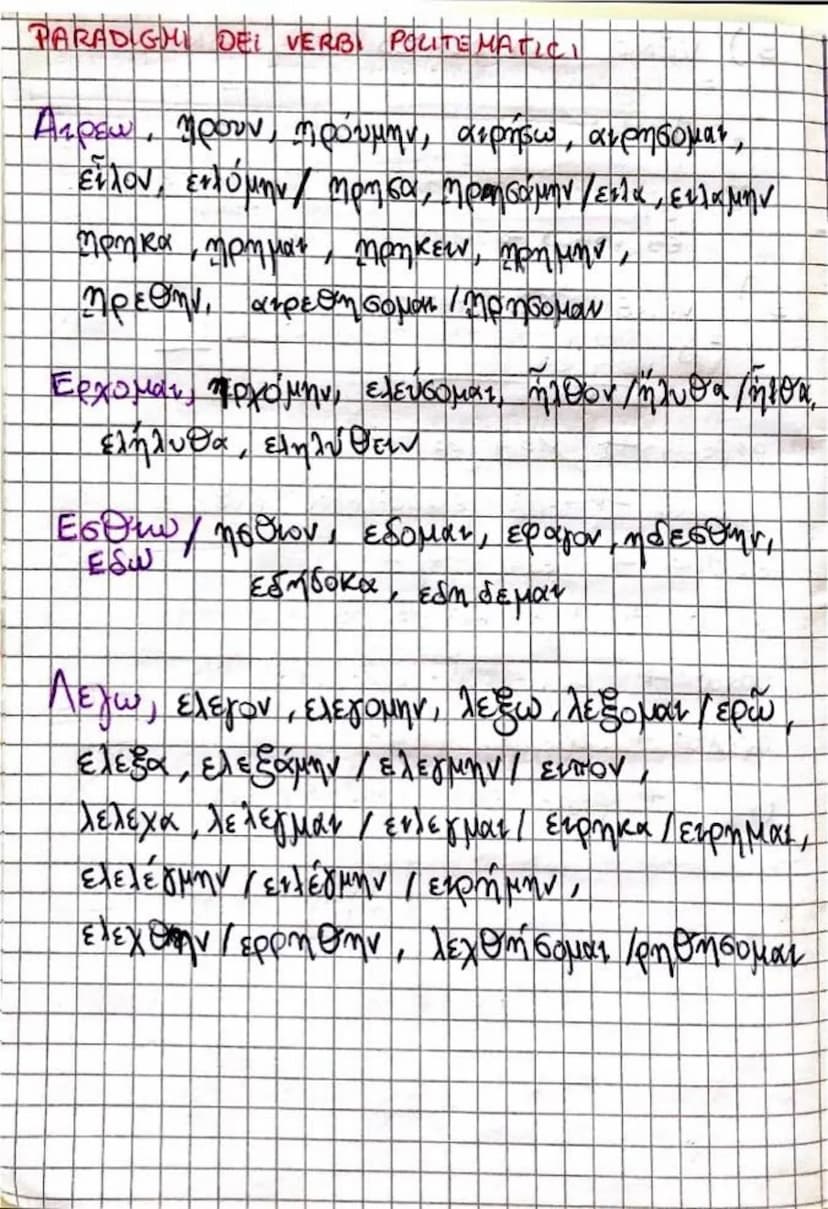 PARADIGMI DEI VERBI POLITEMATICI
Αιρεω, ῃρουν, ῃρόυμην, αιρήσω, αιρησομαι,
εἷλον, ειλόμην / ῃρησα, ῃρησάμην / ειλα, ειλαμην
ῃρηκα, ῃρημαι, ῃρηκειν, ῃρημην,
ῃρεθην, αιρεθησομαι / ῃρησομαι
Ερχομαι, ηρχόμην, ελεύσομαι, ἦλθον / ἤλυθα / ἦλθα,
ελήλυθα, εληλύθειν
Εσθιω / ησθιον, εδομαι, εφαγον, ηδεσθην,
εδω
εδήδοκα, εδηδεμαι
Λεγω, ελεγον, ελεγομην, λεξω, λεξομαι / ερῶ,
ελεξα, ελεξάμην / ελεγμην / ειπον,
λελεχα, λελεγμαι / ειλεγμαι / ειρηκα / ειρημαι,
ελελέγμην / ειλέγμην / ειρήμην,
ελεχθην / ερρηθην, λεχθήσομαι / ρηθησομαι